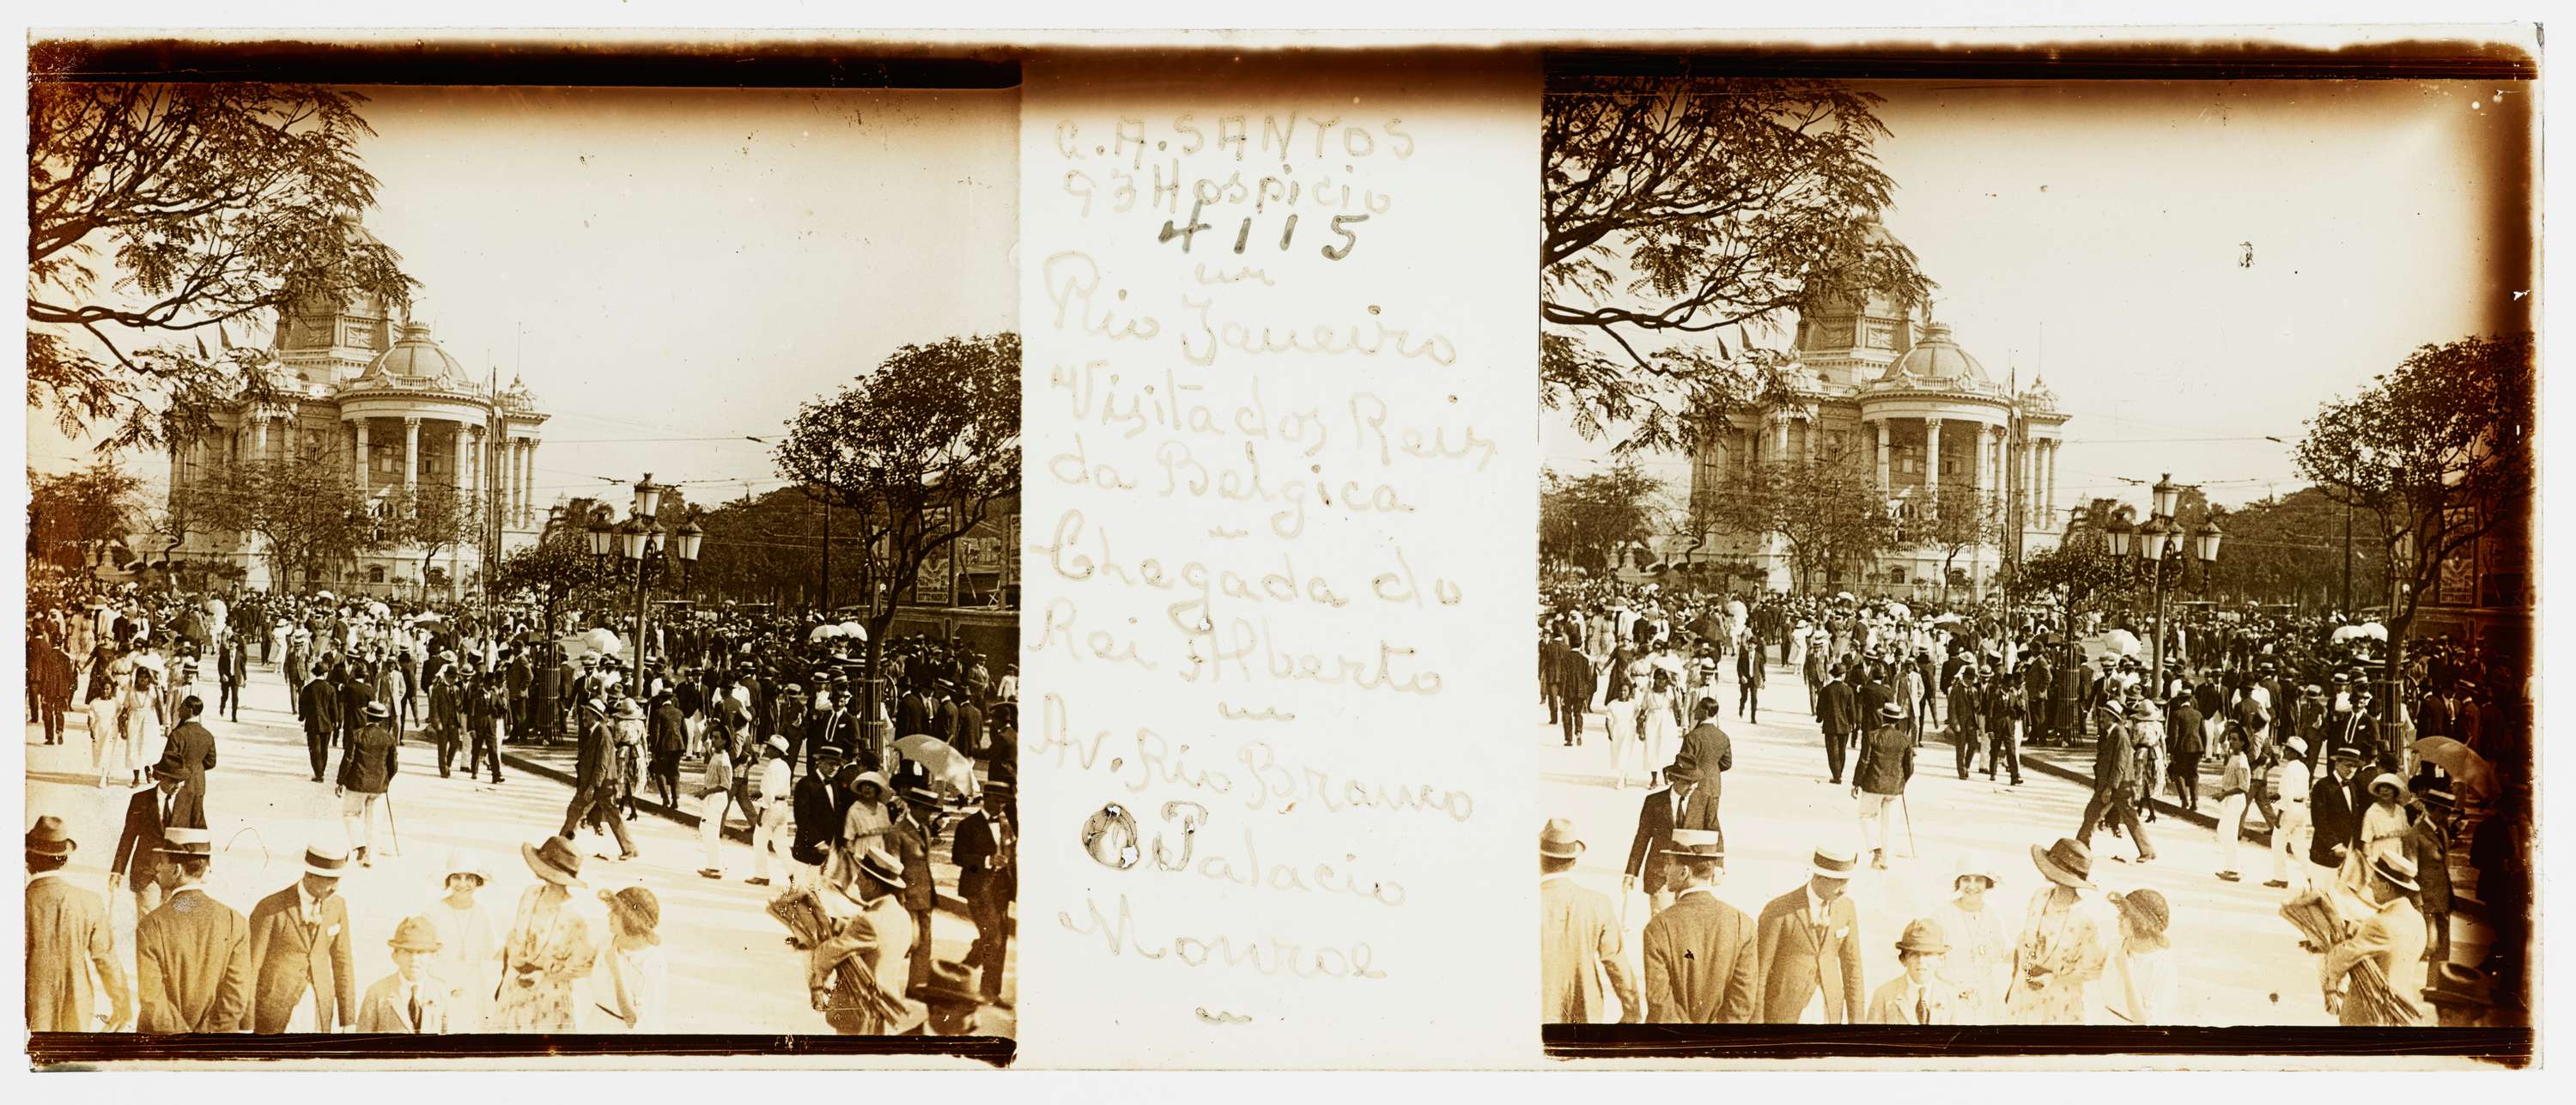 C.A.SANTOS
93 Hospicio
4115
Rio Janeiro
Visita dos Reis
da Belgica
Chegada do
Rei Alberto
Av. Rio Branco
O Palacio
Monroe